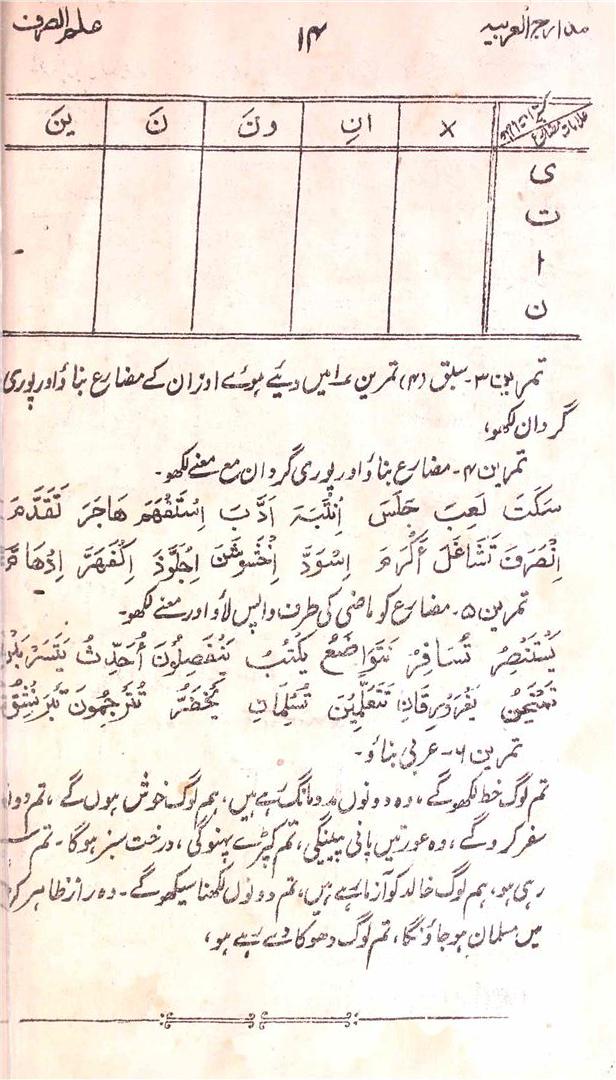 مدارج العربیہ ۱۴ علم الصرف
علامات مضارع × انِ ونَ نَ ینَ
ی
ت
ا
ن
تمرین ۳۔ سبق (۴) تمرین ۱ میں دیئے ہوئے اوزان کے مضارع بناؤ اور پوری
گردان لکھو،
تمرین ۴۔ مضارع بناؤ اور پوری گردان مع معنے لکھو۔
سَكَتَ لَعِبَ جَلَسَ اِنْتَبَهَ اَدَّبَ اِسْتَفْهَمَ هَاجَرَ تَقَدَّمَ
اِنْصَرَفَ تَشَاغَلَ أَكْرَمَ اِسْوَدَّ اِخْشَوْشَنَ اِجْلَوَّذَ اِكْفَهَرَّ اِدْهَامَّ
تمرین ۵۔ مضارع کو ماضی کی طرف واپس لاؤ اور معنے لکھو۔
يَسْتَنْصِرُ تُسَافِرُ نَتَوَاضَعُ يَكْتُبُ يَنْفَصِلُونَ أُحَدِّثُ
تَتَعَلَّمِيْنَ تُسْلِمَانِ يَخْضَرُّ تُتَرْجِمُونَ
تمرین ۶۔ عربی بناؤ۔
تم لوگ خط لکھو گے، وہ دونوں مدد مانگ رہے ہیں، ہم لوگ خوش ہوں گے، تم
سفر کرو گے، وہ عورتیں پانی پیینگی، تم کپڑے پہنو گی، درخت سبز ہوگا۔ تم
رہی ہو، ہم لوگ خالد کو آزما رہے ہیں، تم دونوں لکھنا سیکھو گے۔ وہ راز ظاہر
میں مسلمان ہو جاؤنگا، تم لوگ دھوکا دے رہے ہو،